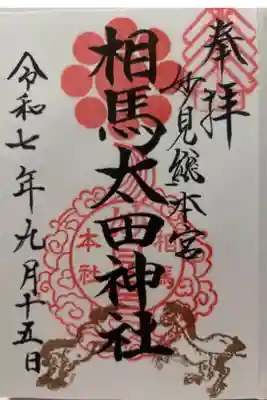 奉拝
妙見総本宮
相馬太田神社
令和七年九月十五日
相馬
本社